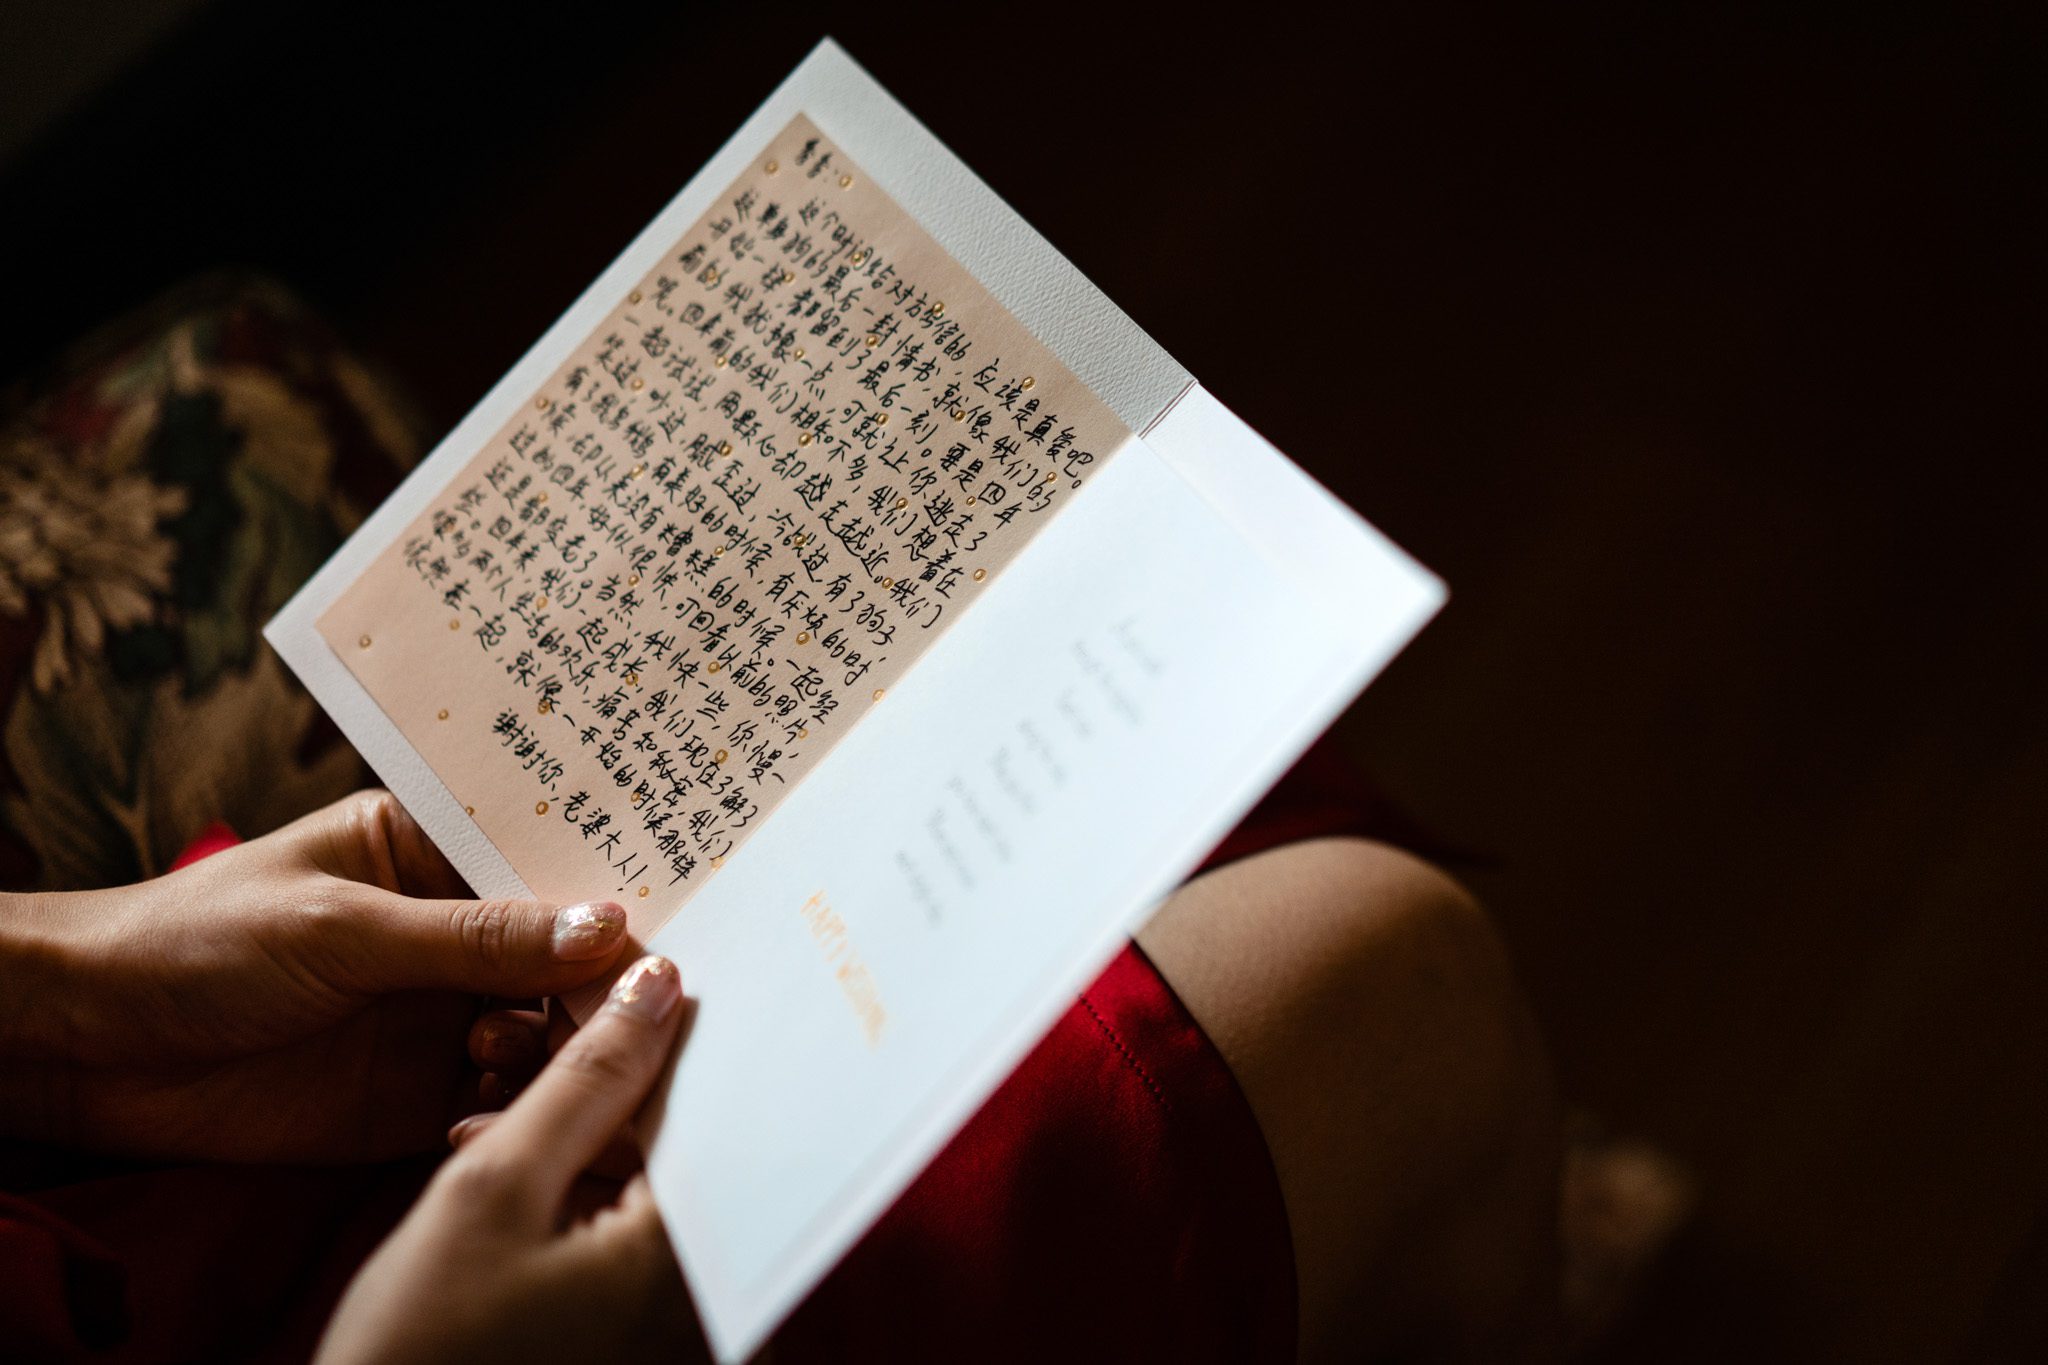 这个时间给对方写信的，应该是真爱吧。
这单身狗的最后一封情书，就像我们的
开始一样，都留到了最后一刻。要是四年
前的我犹豫一点，可就让你逃走了
呢。四年前的我们相知不多，我们想着在
一起试试，两颗心却越走越近。我们
笑过，吵过，腻歪过，冷战过，有了狗子，
有了我鸟鹅，有美好的时候，有厌烦的时
候，却从来没有糟糕的时候。一起经
过的四年，好似很快，可回看以前的照片，
还是都变老了。当然，我快一些，你慢一
些。四年来，我们一起成长，我们现在了解了
彼此两个人生活的欢乐，痛苦和秘密，我们
依然在一起，就像一开始的时候那样
谢谢你，老婆大人！
HAPPY WEDDING